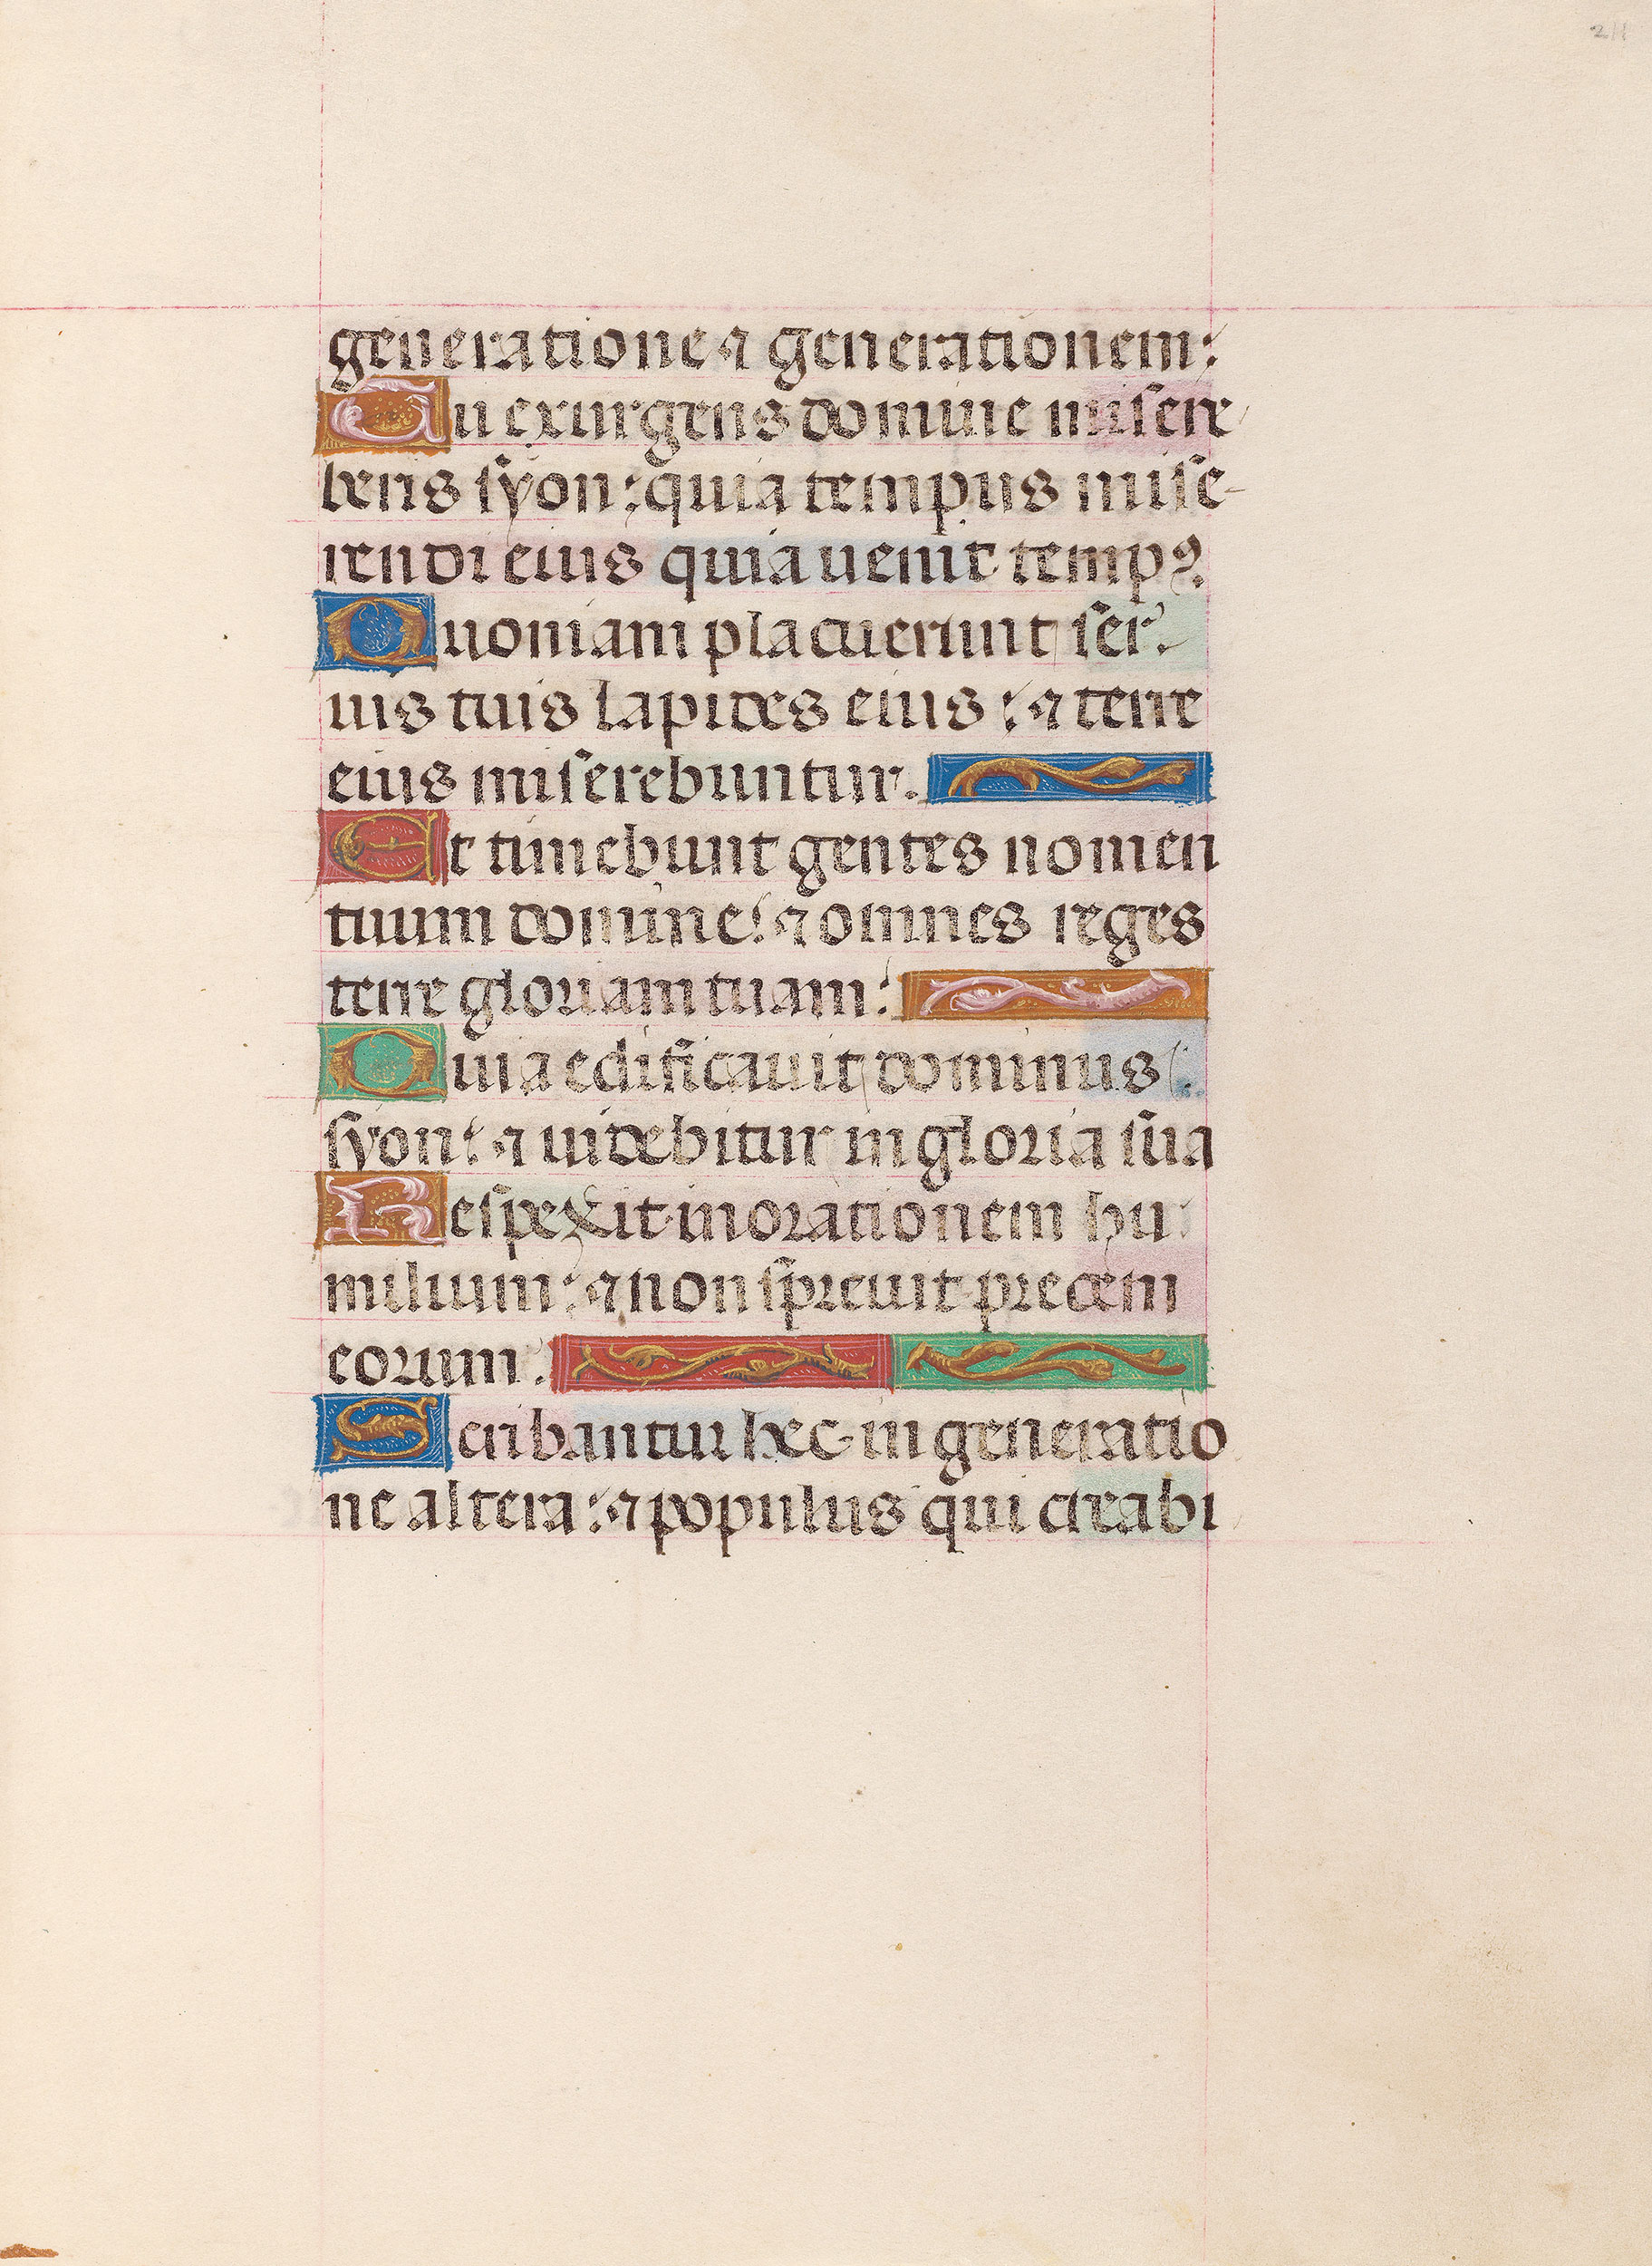 211
generatione ⁊ generationem:
Tu exurgens domine misere
beris syon: quia tempus mise-
rendi eius quia uenit tempꝰ.
Quoniam placuerunt ser-
uis tuis lapides eius: ⁊ terre
eius miserebuntur.
Et timebunt gentes nomen
tuum domine: ⁊ omnes reges
terre gloriam tuam:
Quia edificauit dominus
syon: ⁊ uidebitur in gloria sua
Respexit in orationem hu
milium: ⁊ non spreuit precem
eorum.
Scribantur hec in generatio
ne altera: ⁊ populus qui creabi